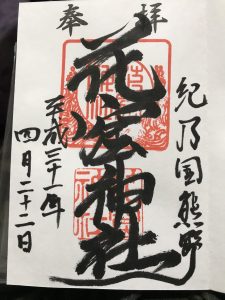 奉拝
紀乃国熊野
花窟神社
平成三十一年
四月二十二日